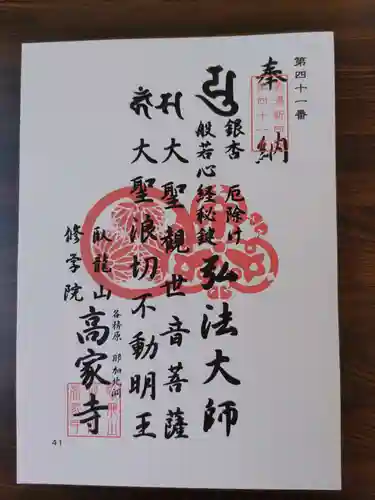 第四十一番
奉納
銀杏 厄除け
般若心経秘鍵 弘法大師
大聖觀世音菩薩
大聖浪切不動明王
臥龍山
修学院
各務原 那加北洞
高家寺
41